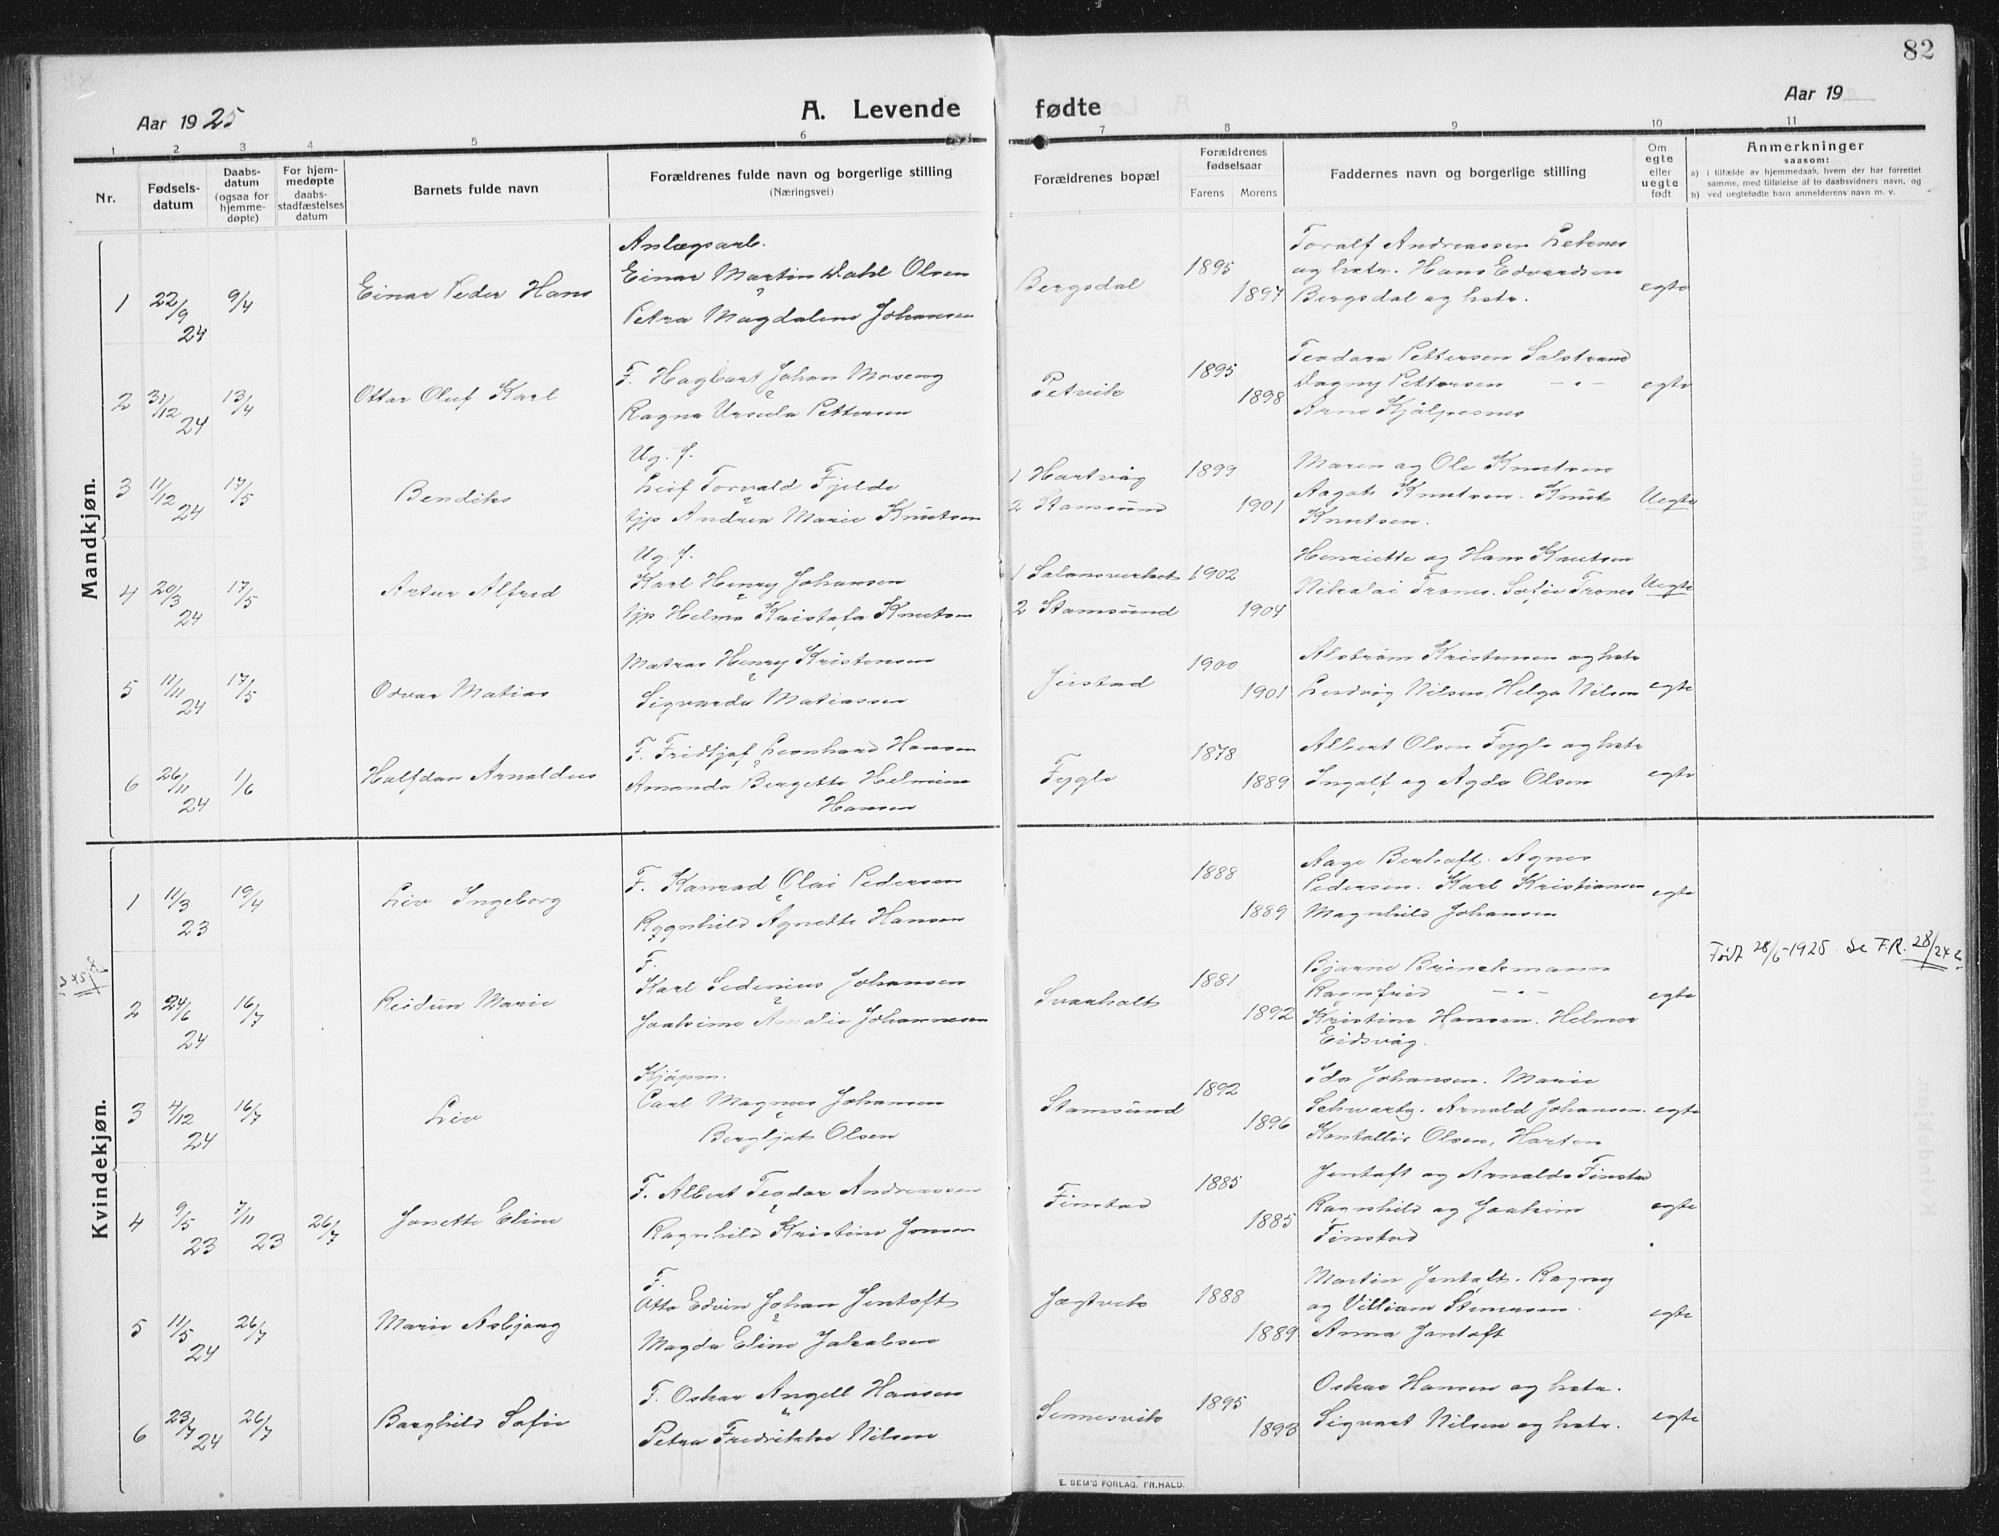 82
Aar 1925
A. Levende fødte
Aar 19
1 2 3 4 5 6 7 8 9 10 11
Nr.
Fødsels-
datum
Daabs-
datum
(ogsaa for
hjemme-
døpte)
For hjem-
medøpte
daabs-
stadfæstelses
datum
Barnets fulde navn
Forældrenes fulde navn og borgerlige stilling
(Næringsvei)
Forældrenes bopæl
Forældrenes
fødselsaar
Farens Morens
Faddernes navn og borgerlige stilling
Om
egte
eller
uegte
født
Anmerkninger
saasom:
a) i tilfælde av hjemmedaab, hvem der har forrettet
samme, med tilføielse af to daabsvidners navn, og
b) ved uegtefødte barn anmelderens navn m. v.
Mandkjøn.
1 22/9 24 9/4 Einar Peder Hans
Anlægsarb.
Einar Martin Dahl Olsen
Petra Magdalene Johansen
Bergsdal 1895 1897
Toralf Andreassen Leknes
og hstr. Hans Edvardsen
Bergsdal og hstr.
egte
2 31/12 24 13/4 Ottar Oluf Karl
F. Hagbart Johan Moseng
Ragna Ursula Pettersen
Petvik 1895 1898
Teodora Pettersen Salstrand
Dagny Pettersen — " —
Arne
egte
3 11/12 24 17/5 Bendiks
Ug. f.
Leif Torvald Fjelde
tjp Andrea Marie Knutsen
1 Hartvåg 1899
2 Stamsund 1901
Maren og Ole Knutsen
Aagot Knutsen. Knut
Knutsen.
Uegte
4 20/3 24 17/5 Artur Alfred
Ug. f.
Karl Henry Johansen
tjp Helma Kristofa Knutsen
1 1902
2 Stamsund 1904
Henriette og Hans Knutsen
Nikolai Trones. Sofie Trones
Uegte
5 11/11 24 17/5 Odvar Matias
Henry Kristensen
Sigvarda Matiassen
1900 1901
Alstrøm Kristensen og hstr
Ludvig Nilsen. Helga Nilsen
egte
6 26/11 24 1/6 Halfdan Arnoldus
F. Fridtjof Leonhard Hansen
Amanda Bergette Helmine
Hansen
Fygle 1878 1889
Albert Olsen Fygle og hstr
Ingolf og Agda Olsen
egte
Kvindekjøn.
1 11/3 23 19/4 Liv Ingeborg
F. Konrad Olai Pedersen
Ragnhild Agnette Hansen
1888 1889
Aage Agnes
Pedersen. Karl Kristiansen
Magnhild Johansen
egte
2 24/6 24 16/7 Reidun Marie
F.
Karl Sedenius Johansen
Joakime Amalie Johannesen
Svarholt 1881 1892
Bjarne Brinckmann
Ragnfrid — " —
Kristine Hansen. Helmer
Eidsvåg.
egte
Født 28/6-1925 Se F.R. 28/
3 4/12 24 16/7 Liv
Kjøpm.
Carl Magnus Johansen
Bergljot Olsen
Stamsund 1892 1896
Ida Johansen. Marie
Schwartz. Arnold Johansen.
Olsen, Horten
egte
4 9/5 23 7/11 23 26/7 Janette Eline
F. Albert Teodor Andreassen
Ragnhild Kristine Jensen
Finstad 1885 1885
Jentoft og Arnolda Finstad
Ragnhild og Joakim
Finstad
egte
5 11/5 24 26/7 Marie Asbjørg
F.
Otto Edvin Johan Jentoft
Magda Eline Jakobsen
Jægtvik 1888 1889
Martin Jentoft. Ragny
og Villiam Stenersen.
Anna Jentoft
egte
6 23/7 24 26/7 Borghild Sofie
F. Oskar Angell Hansen
Petra Fredrikke Nilsen
Sennesvik 1895 1893
Oskar Hansen og hstr.
Sigvart Nilsen og hstr.
egte
E. SEM'S FORLAG, FR.HALD.